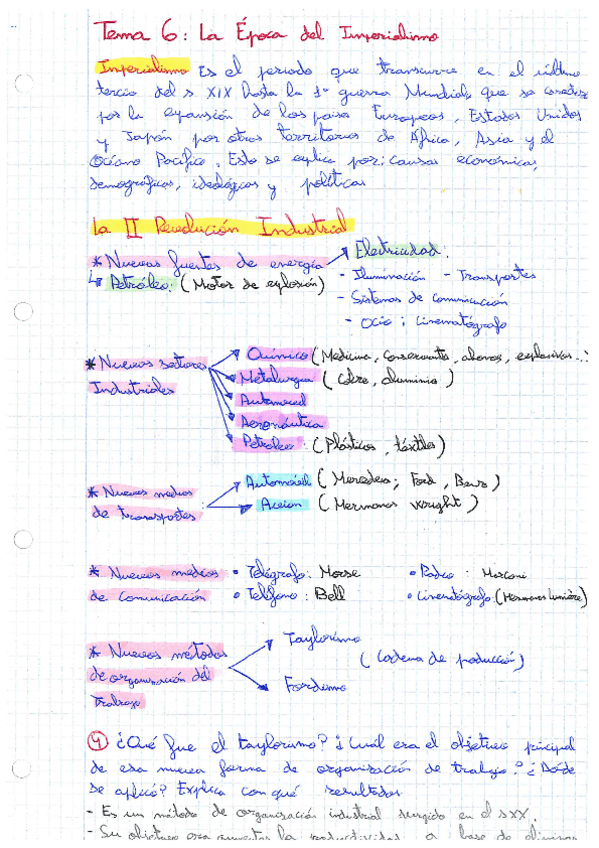 Tema 6: La Época del Imperialismo
Imperialismo Es el periodo que transcurre en el último
tercio del s XIX hasta la 1ª guerra Mundial, que se caracteriza
por la expansión de los países Europeos, Estados Unidos
y Japón por otros territorios de África, Asia y el
Océano Pacífico. Esto se explica por: causas económicas,
demográficas, ideológicas y políticas
La II Revolución Industrial
* Nuevas fuentes de energía Electricidad:
↳ Petróleo: (Motor de explosión) - Iluminación - Transportes
- Sistemas de comunicación
- Ocio; Cinematógrafo
* Nuevos sectores Industriales
Químico (Medicina, Conservantes, abonos, explosivos...)
Metalurgia (Cobre, aluminio)
Automóvil
Aeronáutica
Petróleo: (Plásticos, téxtiles)
* Nuevos medios de transportes
Automóvil (Mercedes; Ford, Benz)
Avion (Hermanos Wright)
* Nuevos medios • Telégrafo: Morse • Radio: Marconi
de Comunicación • Teléfono: Bell • Cinematógrafo: (Hermanos Lumière)
* Nuevos métodos de organización del Trabajo
Taylorismo
(Cadena de producción)
Fordismo
4 ¿Qué fue el taylorismo? ¿Cuál era el objetivo principal
de esa nueva forma de organización de trabajo? ¿Dónde
se aplicó? Explica con qué resultados
- Es un método de organización industrial surgido en el s XX.
- Su objetivo era aumentar la productividad a base de eliminar